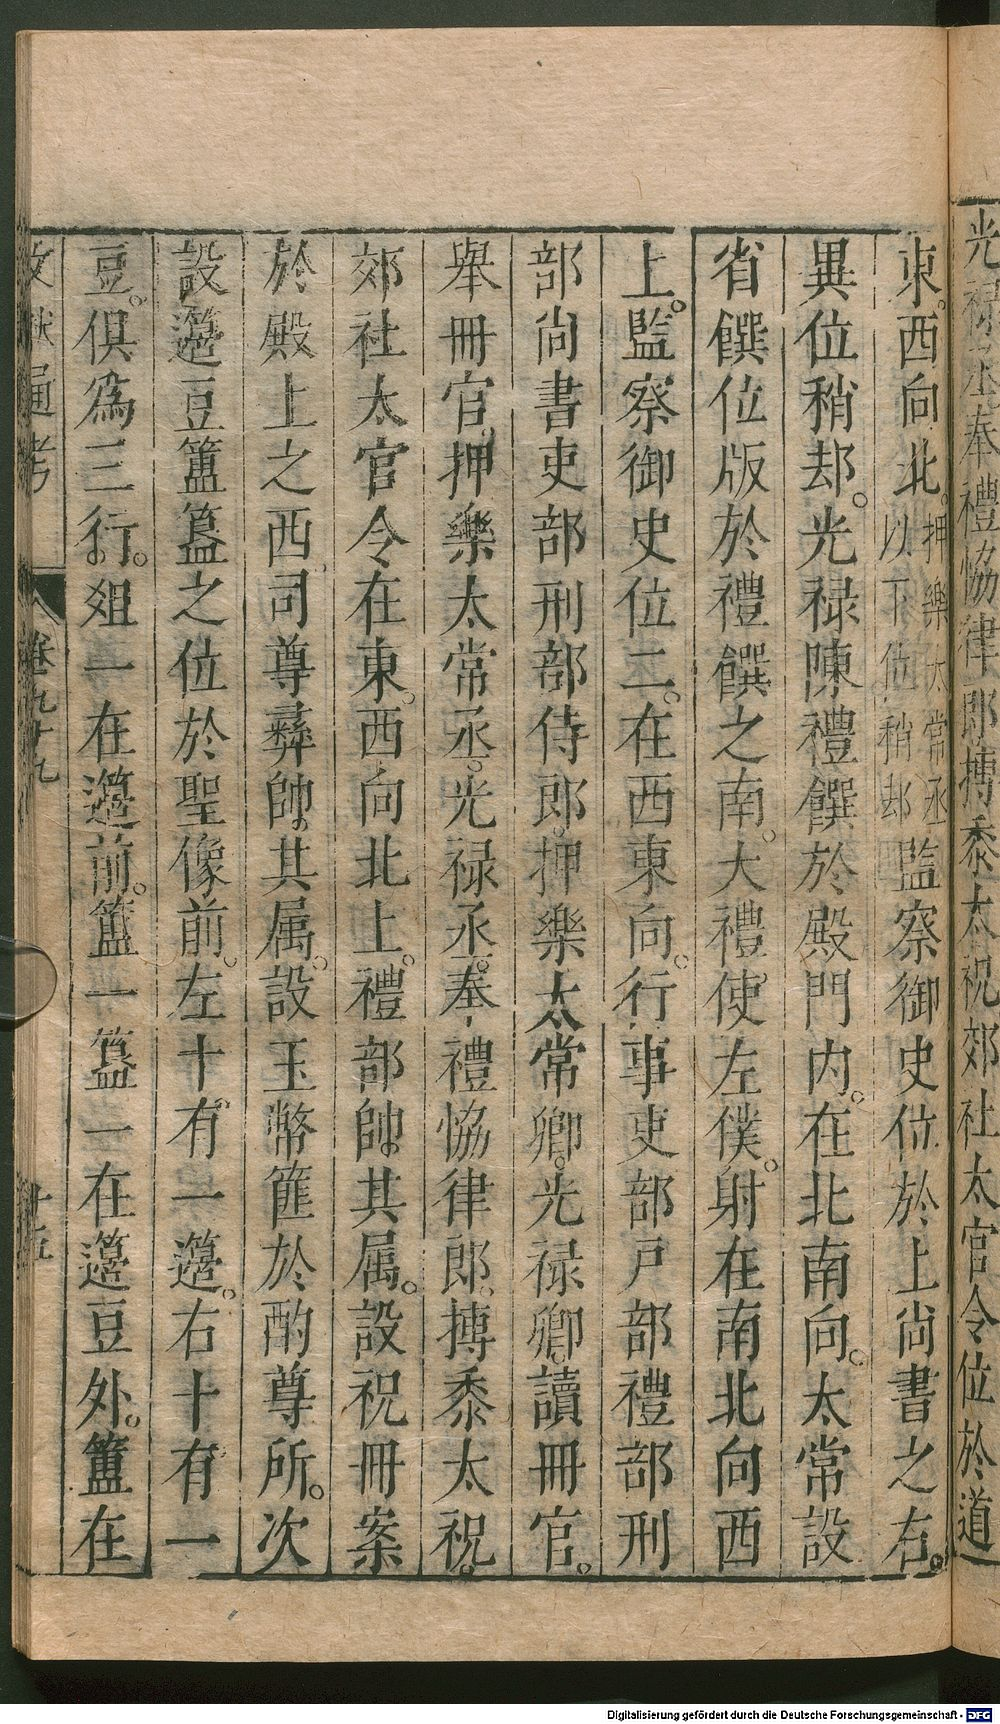 光禄丞奉禮恊律郎摶黍太祝郊社太官令位於道
東。西向北。押樂太常丞以下位稍却監察御史位於上尚書之右。
異位稍却。光禄陳禮饌於殿門内。在北南向。太常設
省饌位版於禮饌之南。大禮使左僕。射在南北向西
上。監察御史位二。在西東向。行事吏部戸部禮部刑
部尚書吏部刑部侍郎。押樂太常卿。光禄卿。讀冊官。
舉冊官。押樂太常丞。光禄丞。奉禮恊律郎。摶黍太祝。
郊社太官令在東。西向北上。禮部帥。其属。設祝冊案
於殿上之西。司尊彝帥。其属。設玉幣篚於酌尊所。次
設籩豆簠簋之位於聖像前。左十有一籩。右十有一
豆。俱為三行。爼一在籩前。簠一簋一在籩豆外。簠在
文獻通考 卷九十九 十五
Digitalisierung gefördert durch die Deutsche Forschungsgemeinschaft - DFG